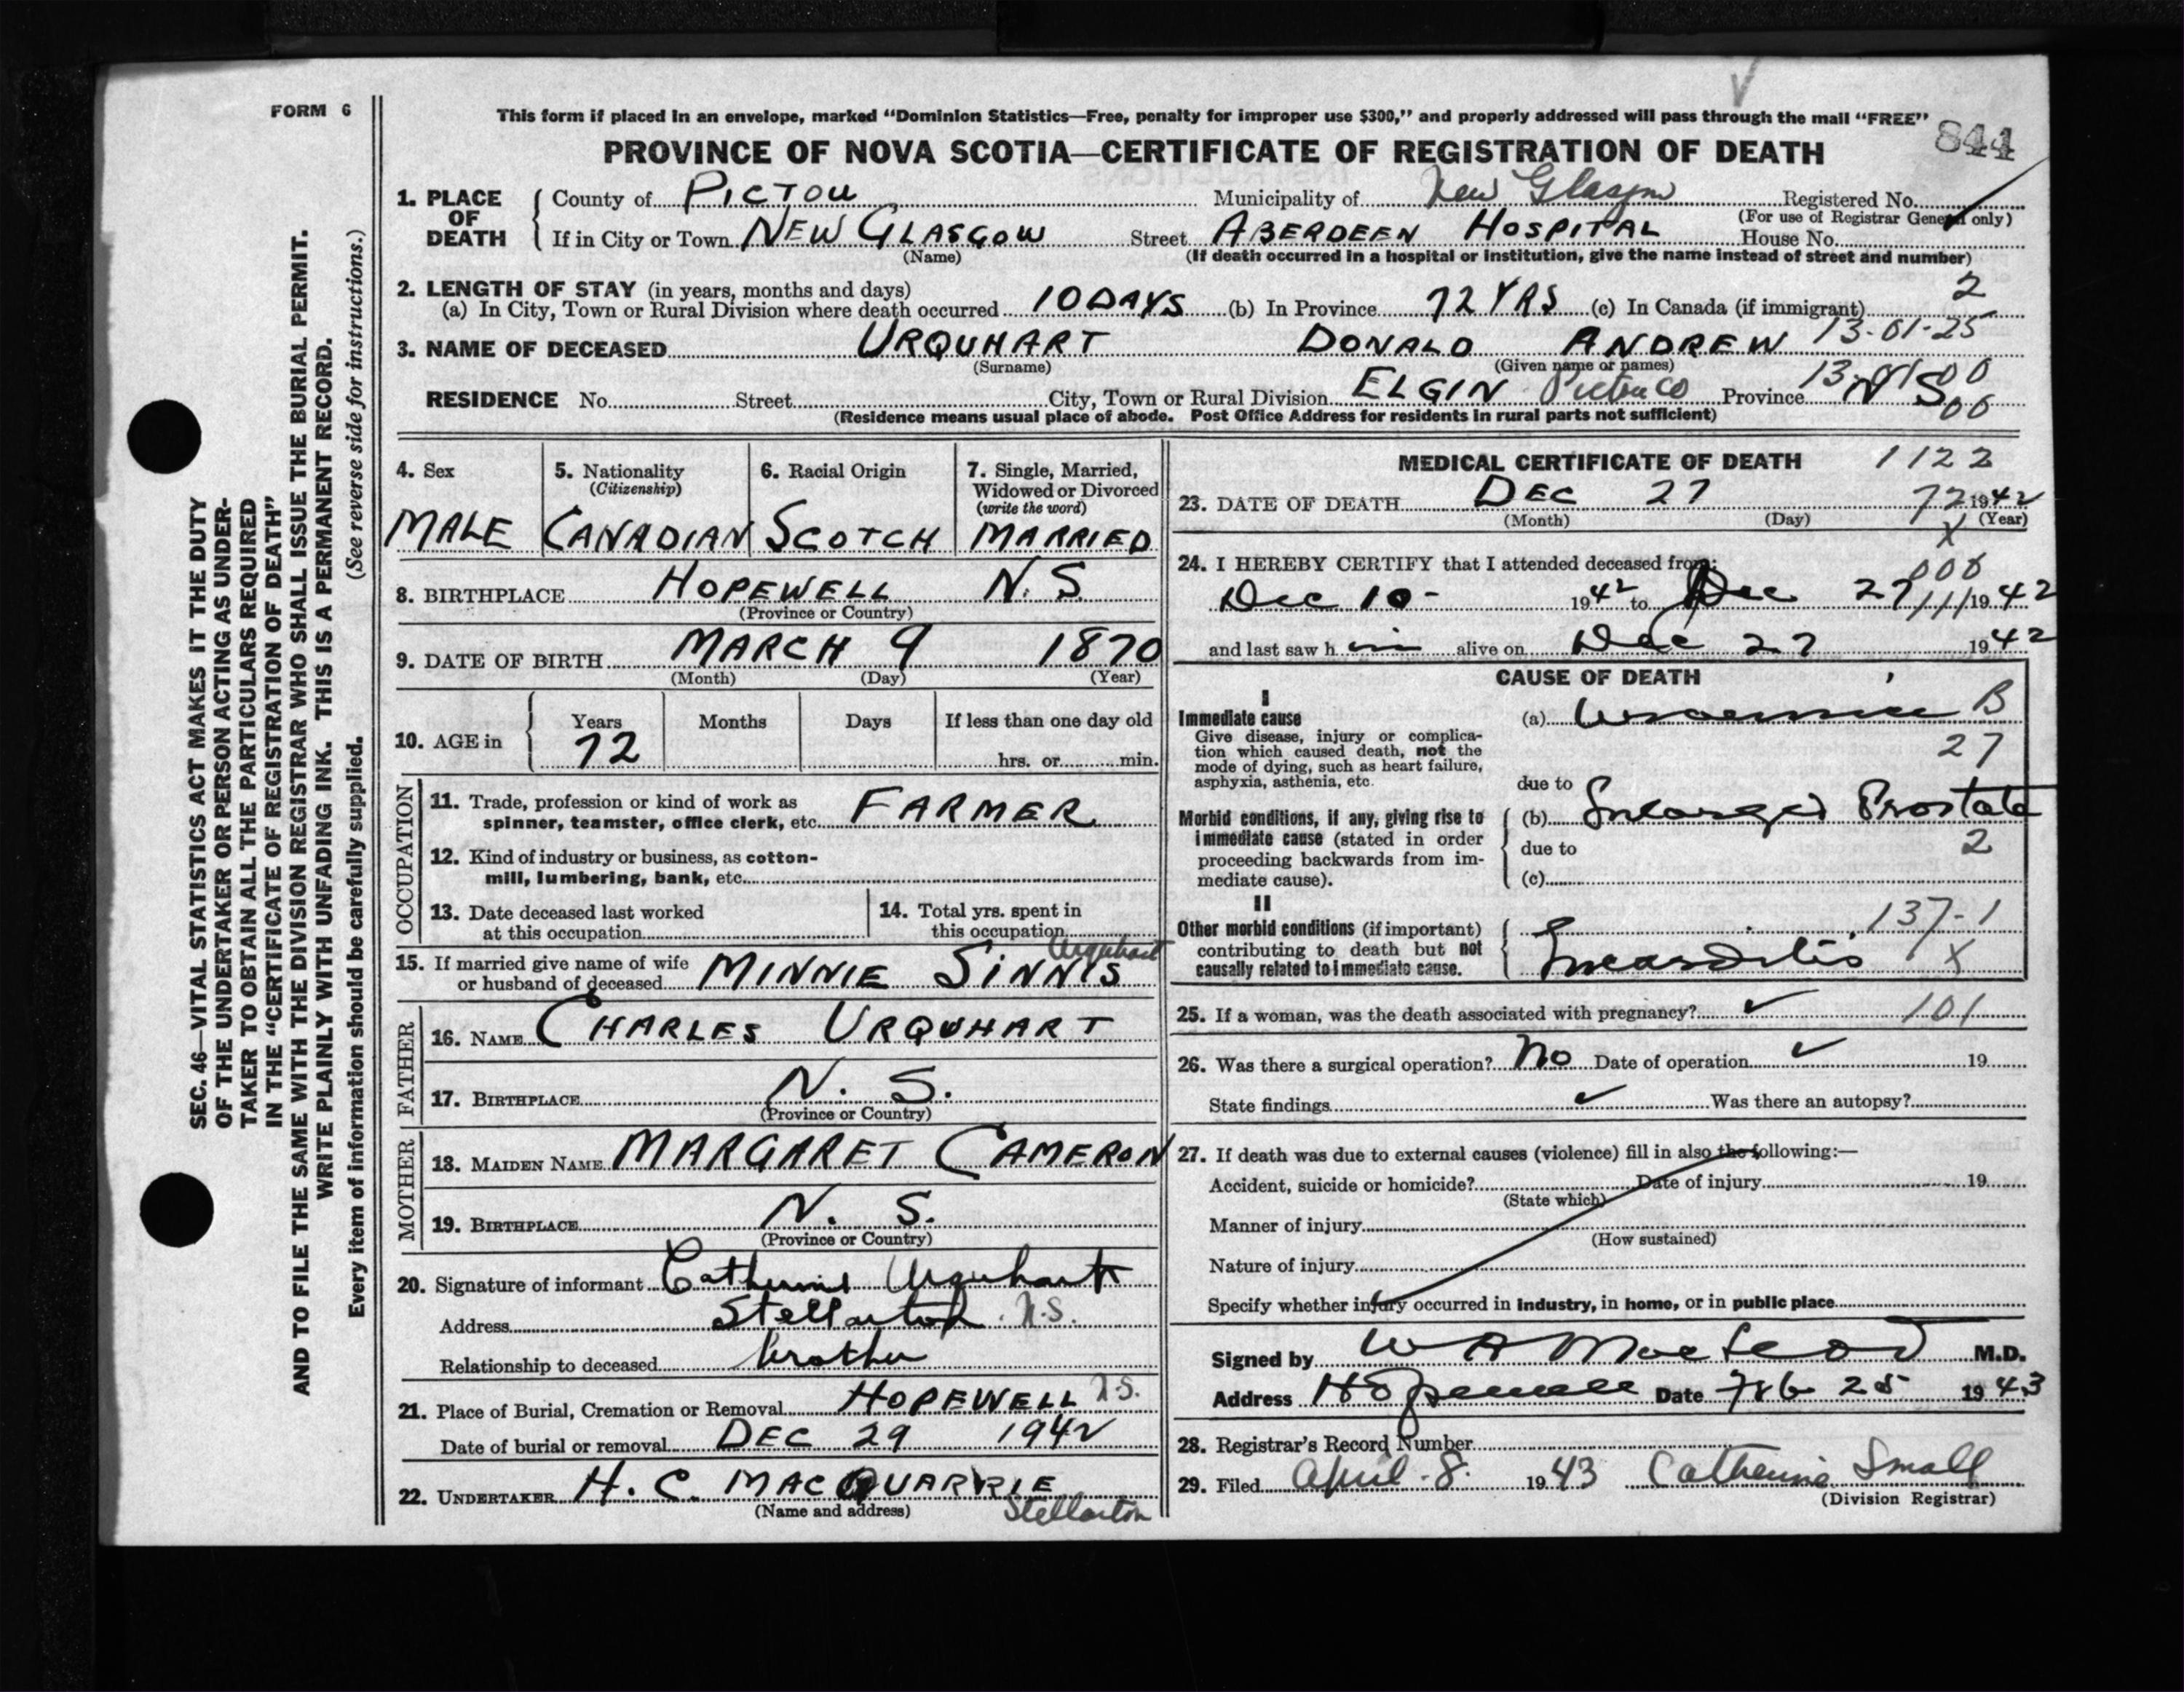 FORM 6
This form if placed in an envelope, marked "Dominion Statistics—Free, penalty for improper use $300," and properly addressed will pass through the mail "FREE"
844
PROVINCE OF NOVA SCOTIA—CERTIFICATE OF REGISTRATION OF DEATH
1. PLACE OF DEATH
County of PICTOU Municipality of New Glasgow Registered No.
(For use of Registrar General only)
If in City or Town NEW GLASGOW Street ABERDEEN HOSPITAL House No.
(Name) (If death occurred in a hospital or institution, give the name instead of street and number)
2. LENGTH OF STAY (in years, months and days)
(a) In City, Town or Rural Division where death occurred 10 DAYS (b) In Province 72 YRS (c) In Canada (if immigrant) 2
3. NAME OF DECEASED URQUHART DONALD ANDREW 13-01-25
(Surname) (Given name or names)
13-01 00
RESIDENCE No. Street City, Town or Rural Division ELGIN Pictou Co Province N S 00
(Residence means usual place of abode. Post Office Address for residents in rural parts not sufficient)
4. Sex
MALE
5. Nationality
(Citizenship)
CANADIAN
6. Racial Origin
SCOTCH
7. Single, Married,
Widowed or Divorced
(write the word)
MARRIED
8. BIRTHPLACE HOPEWELL N. S.
(Province or Country)
9. DATE OF BIRTH MARCH 9 1870
(Month) (Day) (Year)
10. AGE in
Years Months Days If less than one day old
72 hrs. or min.
OCCUPATION
11. Trade, profession or kind of work as
spinner, teamster, office clerk, etc. FARMER
12. Kind of industry or business, as cotton-
mill, lumbering, bank, etc.
13. Date deceased last worked
at this occupation
14. Total yrs. spent in
this occupation
Urquhart
15. If married give name of wife
or husband of deceased MINNIE SINNIS
FATHER
16. NAME CHARLES URQUHART
17. BIRTHPLACE N. S.
(Province or Country)
MOTHER
18. MAIDEN NAME MARGARET CAMERON
19. BIRTHPLACE N. S.
(Province or Country)
20. Signature of informant Urquhart
Address Stellarton N.S.
Relationship to deceased brother
21. Place of Burial, Cremation or Removal HOPEWELL N.S.
Date of burial or removal DEC 29 1942
22. UNDERTAKER H. C. MACQUARRIE
(Name and address) Stellarton
MEDICAL CERTIFICATE OF DEATH 1122
23. DATE OF DEATH DEC 27 72 1942
(Month) (Day) X (Year)
24. I HEREBY CERTIFY that I attended deceased from:
000
Dec 10 - 1942 to Dec 27 111 1942
and last saw h im alive on Dec 27 1942
CAUSE OF DEATH
I
Immediate cause
Give disease, injury or complica-
tion which caused death, not the
mode of dying, such as heart failure,
asphyxia, asthenia, etc.
(a) Uraemia B
27
due to
Morbid conditions, if any, giving rise to
immediate cause (stated in order
proceeding backwards from im-
mediate cause).
(b) Enlarged Prostate
due to 2
(c)
II
Other morbid conditions (if important)
contributing to death but not
causally related to immediate cause.
137-1
X
25. If a woman, was the death associated with pregnancy? ✓ 101
26. Was there a surgical operation? No Date of operation ✓ 19
State findings ✓ Was there an autopsy?
27. If death was due to external causes (violence) fill in also the following:—
Accident, suicide or homicide? Date of injury 19
(State which)
Manner of injury
(How sustained)
Nature of injury
Specify whether injury occurred in industry, in home, or in public place
Signed by W A MacLeod M.D.
Address Hopewell Date Feb 25 1943
28. Registrar's Record Number
29. Filed April 8. 1943 Catherine Small
(Division Registrar)
SEC. 46—VITAL STATISTICS ACT MAKES IT THE DUTY
OF THE UNDERTAKER OR PERSON ACTING AS UNDER-
TAKER TO OBTAIN ALL THE PARTICULARS REQUIRED
IN THE "CERTIFICATE OF REGISTRATION OF DEATH"
AND TO FILE THE SAME WITH THE DIVISION REGISTRAR WHO SHALL ISSUE THE BURIAL PERMIT.
WRITE PLAINLY WITH UNFADING INK. THIS IS A PERMANENT RECORD.
Every item of information should be carefully supplied. (See reverse side for instructions.)